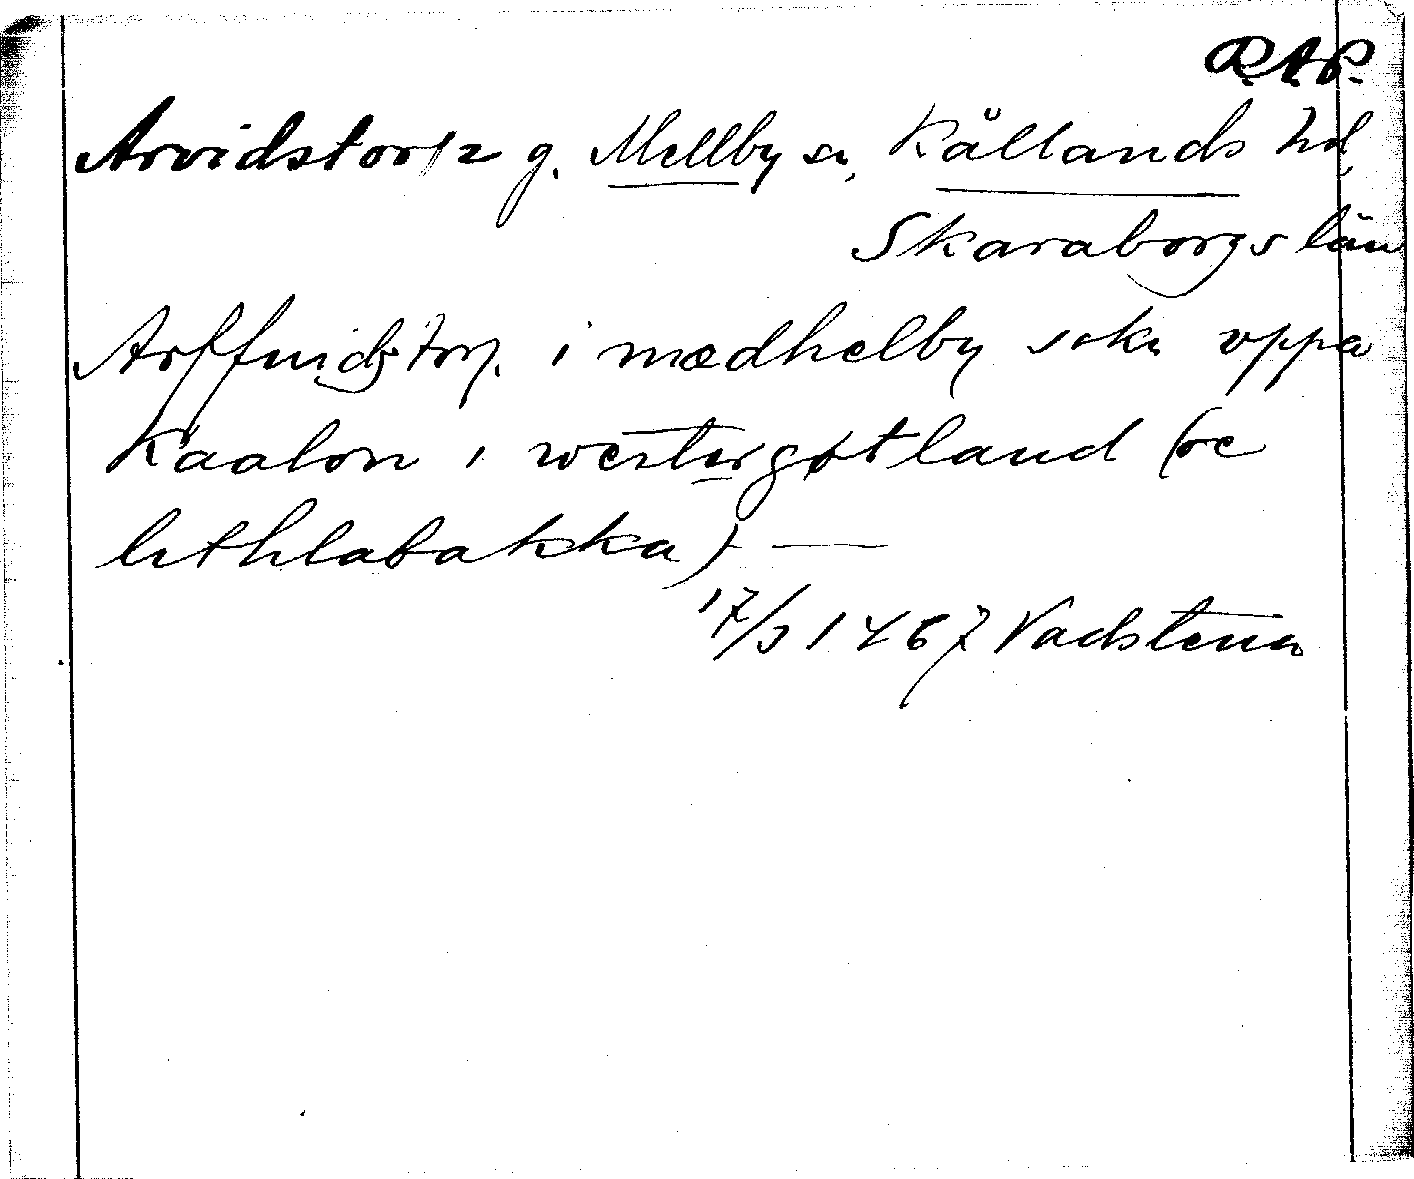 RAP.
Arvidstorp g. Mellby sn, Kållands hd,
Skaraborgs län
Arffuidztorp i mædhelby sokn vppa
Kaalon i westergøtland (oc
lithlabakka) —
17/3 1467 Vadstena